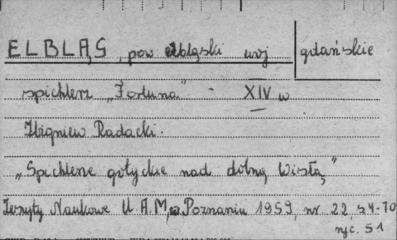 ELBLĄG, pow elbląski woj gdańskie
spichlerz „Fortuna" - XIV w
Zbigniew Radacki.
„Spichlerze gotyckie nad dolną Wisłą"
Zeszyty Naukowe U.A.M, w. Poznaniu 1959, nr. 22, s4-70
ryc. 51